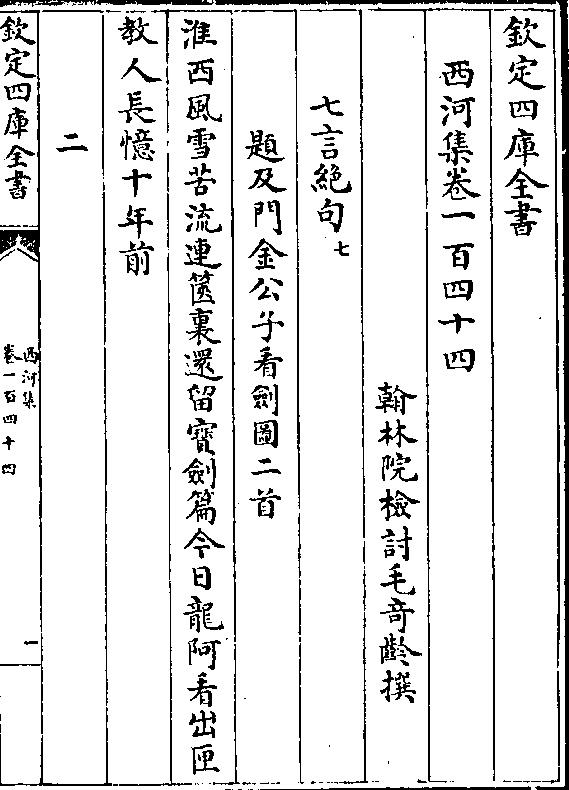 欽定四庫全書
西河集卷一百四十四
翰林院檢討毛奇齡撰
七言絕句七
題及門金公子看劍圖二首
淮西風雪苦流連篋裏還留寶劍篇今日龍阿看出匣
教人長憶十年前
二
欽定四庫全書
西河集
卷一百四十四
一